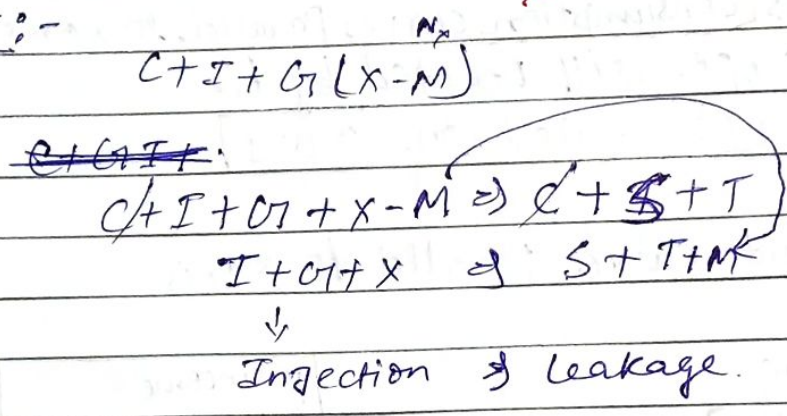 :-
Nx
C+I+G(X-M)
C+GI+
C+I+G+X-M => C+S+T
I+G+X => S+T+M
↓
Injection => Leakage.